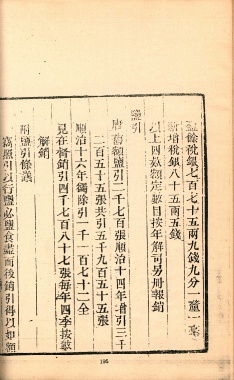 鹽餘稅銀七百七十五兩九錢九分一釐一毫
新增稅銀八十五兩五錢
以上四欵額定數目按年解司另冊報銷
鹽引
唐舊額鹽引二千七百張順治十四年增引三千
二百五十五張共引五千九百五十五張
順治十六年獨除引一千一百七十二全
見在督銷引四千七百八十七張每年四季按數
解銷
附鹽引條議
竊照引以行鹽必鹽食盡而後銷引得以如額
195